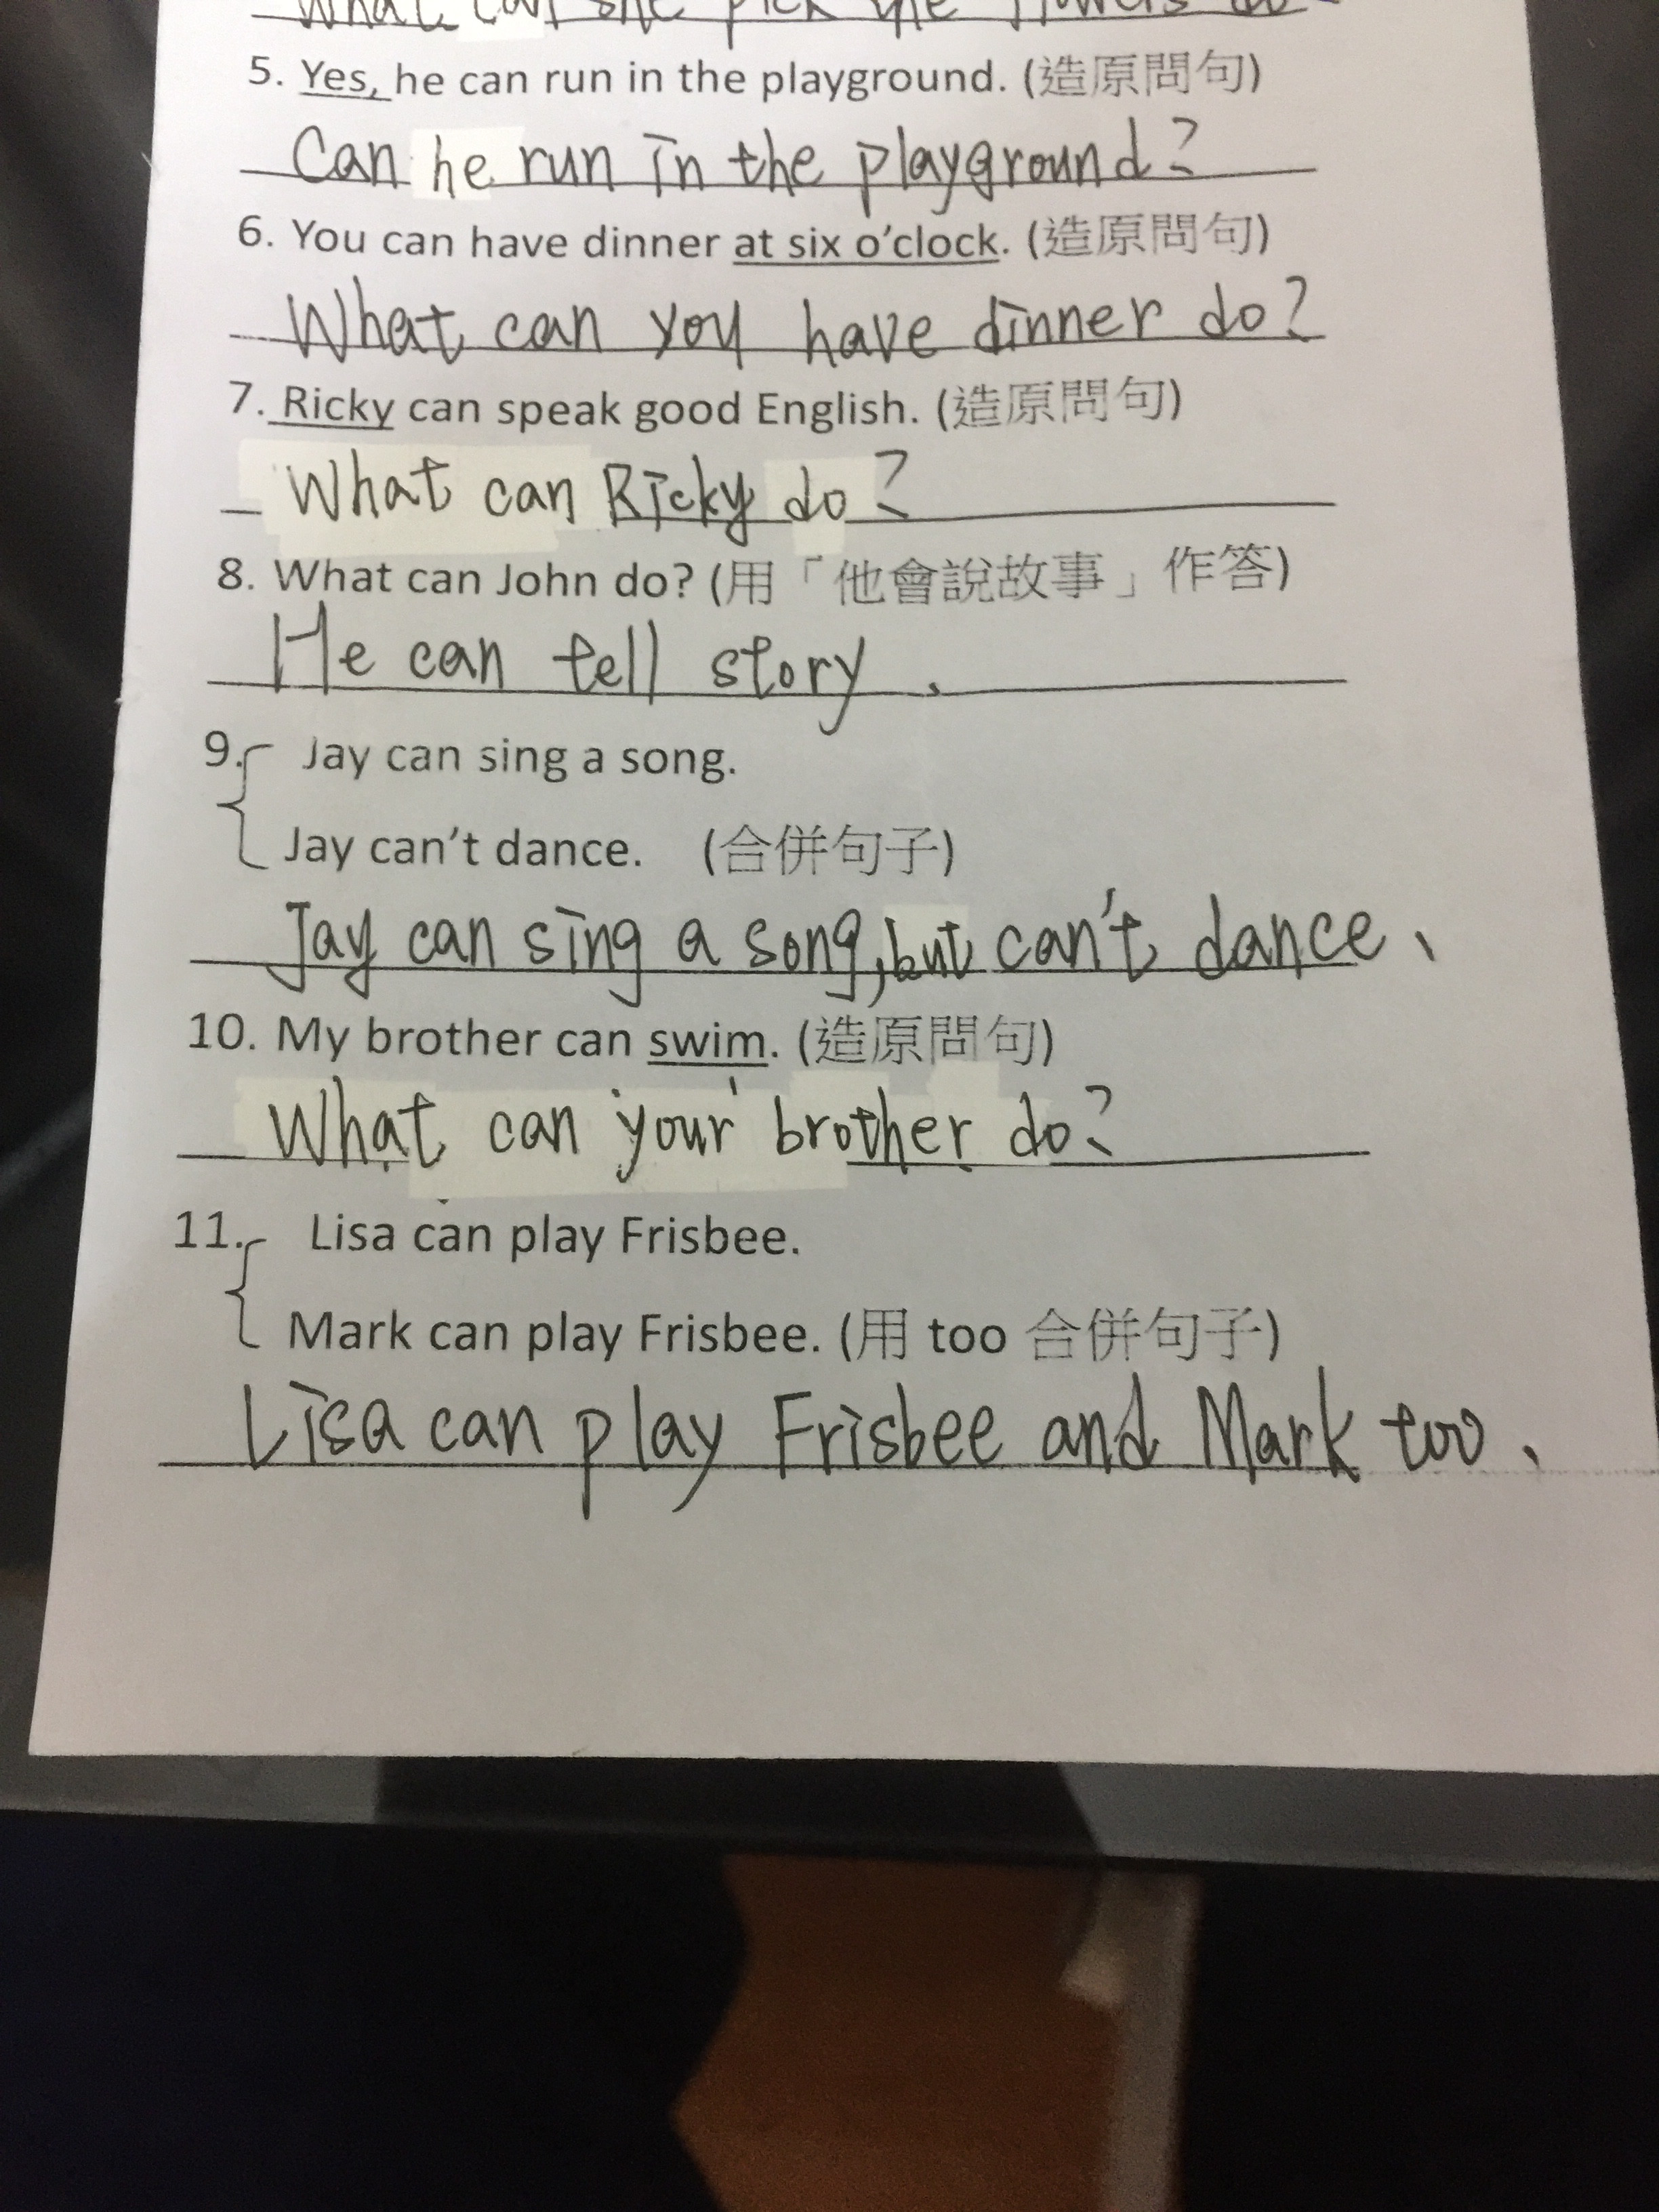 What can she pick the flowers do
5. Yes, he can run in the playground. (造原問句)
Can he run in the playground?
6. You can have dinner at six o'clock. (造原問句)
What can you have dinner do?
7. Ricky can speak good English. (造原問句)
What can Ricky do?
8. What can John do? (用「他會說故事」作答)
He can tell story.
9. Jay can sing a song.
Jay can't dance. (合併句子)
Jay can sing a song, but can't dance.
10. My brother can swim. (造原問句)
What can your brother do?
11. Lisa can play Frisbee.
Mark can play Frisbee. (用 too 合併句子)
Lisa can play Frisbee and Mark too.